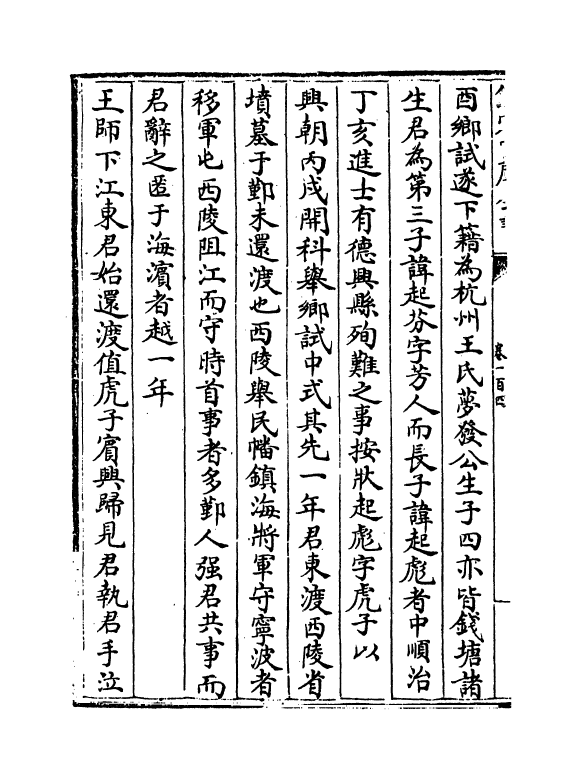 卷一百四
酉鄉試遂下籍為杭州王氏夢發公生子四亦皆錢塘諸
生君為第三子諱起芬字芳人而長子諱起彪者中順治
丁亥進士有德興縣殉難之事按狀起彪字虎子以
興朝丙戌開科舉鄉試中式其先一年君東渡西陵省
墳墓于鄞未還渡也西陵舉民幡鎮海將軍守寧波者
移軍屯西陵阻江而守時首事者多鄞人强君共事而
君辭之匿于海濵者越一年
王師下江東君始還渡值虎子賓興歸見君執君手泣